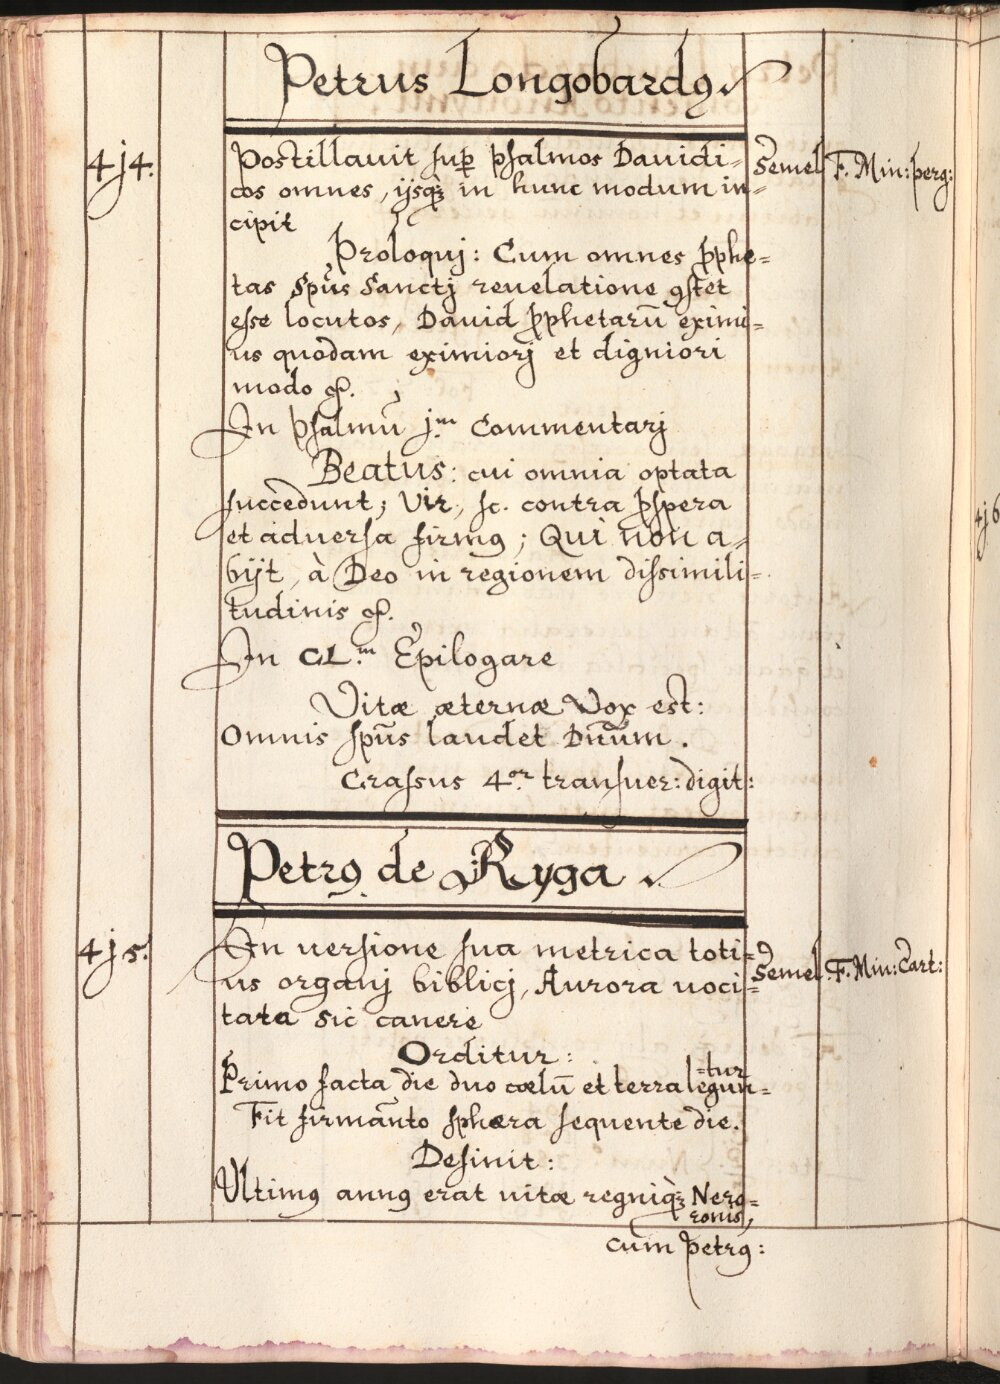 Petrus Longobardꝯ
4j4.
Postillauit sup̱ psalmos Dauidi=
cos omnes, ijsq̓ꝫ in hunc modum in=
cipit
Semel
F. Min: perg:
Proloquj: Cum omnes p̱phe=
tas Spūs Sanctj reuelatione ꝯstet
esse locutos, David p̱phetarū eximi=
us quodam eximiorj et digniori
modo &.
In psalmū j.m Commentarj
Beatus: cui omnia optata
succedunt; Vir, sc. contra p̱spera
et aduersa firmꝯ; Qui non a=
bijt, à Deo in regionem dissimili=
tudinis &.
In CL.m Epilogare
Vitæ æternæ Vox est:
Omnis spūs laudet Dnūm.
Crassus 4.or transuer: digit:
Petrꝯ de Ryga
4j5.
In uersione sua metrica toti=
us organj biblicj, Aurora uoci=
tata sic canere
Semel
F. Min: Cart:
Orditur:
Primo facta die duo cœlū et terra legun=
=tur
Fit firmānto sphæra sequente die.
Definit:
Vltimꝯ annꝯ erat uitæ regniq̀ꝫ Nero=
ronis,
cum petrꝯ:
4j6